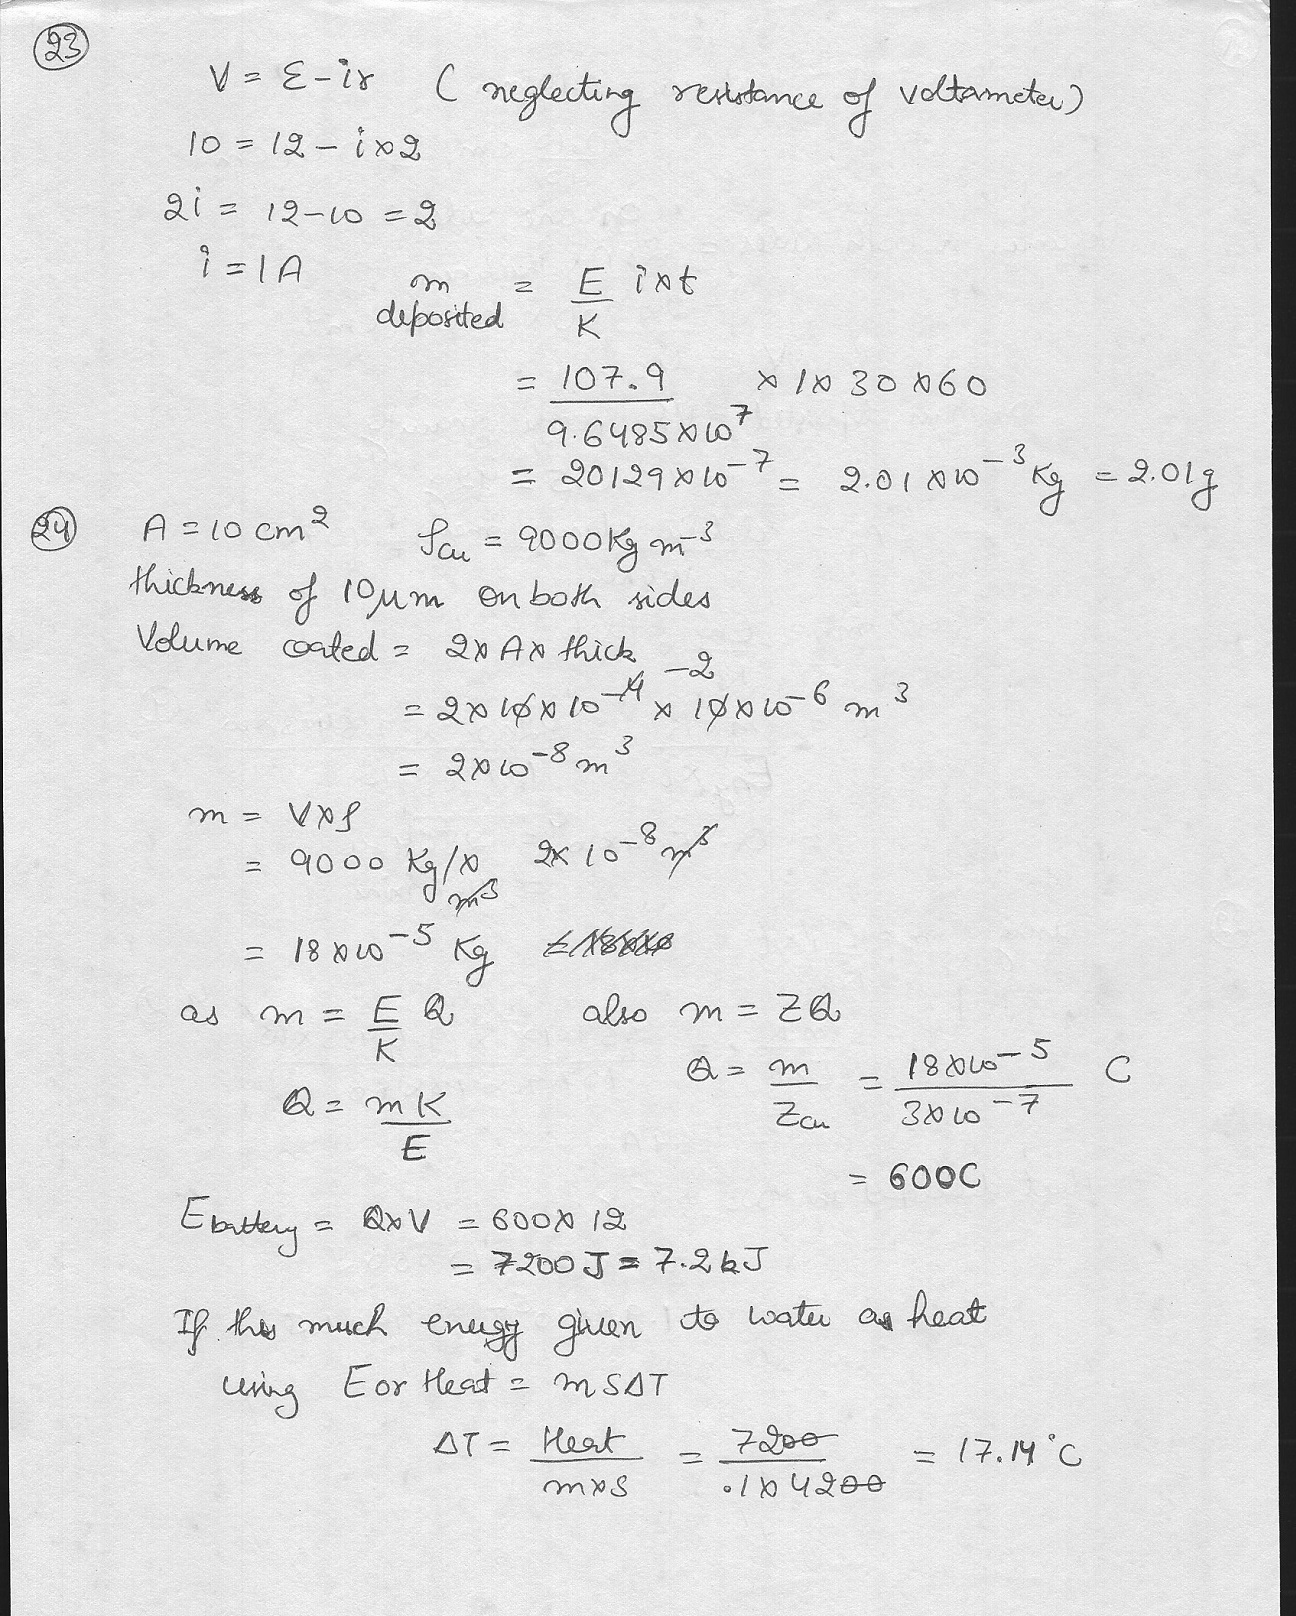 23
V = ε - ir ( neglecting resistance of voltameter)
10 = 12 - i×2
2i = 12-10 = 2
i = 1A
m deposited = E/K i×t
= 107.9/9.6485×10^7 × 1× 30 ×60
= 20129×10^-7 = 2.01×10^-3 Kg = 2.01g
24 A = 10 cm² ρcu = 9000Kg m^-3
thickness of 10μm on both sides
Volume coated = 2× A× thick
= 2×10×10^-4 -2 × 10×10^-6 m³
= 2×10^-8 m³
m = V×ρ
= 9000 Kg/m³ × 2×10^-8 m³
= 18×10^-5 Kg
as m = E/K Q also m = ZQ
Q = mK/E Q = m/Zcu = 18×10^-5/3×10^-7 C
= 600C
E battery = Q×V = 600× 12
= 7200J = 7.2kJ
If this much energy given to water as heat
using E or Heat = mSΔT
ΔT = Heat/m×s = 7200/.1×4200 = 17.14°C